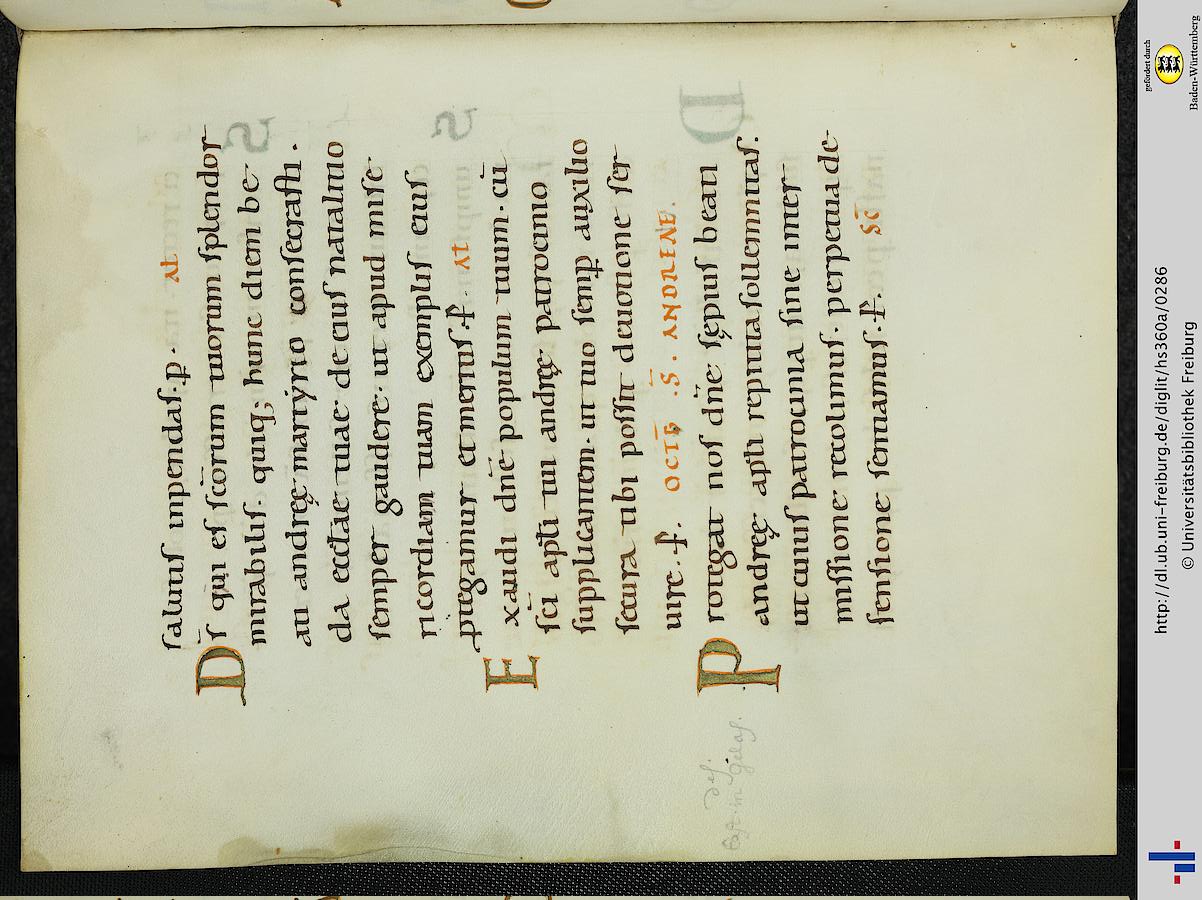 salutis inpendas. ꝑ. AL
D̄s qui es sc̄orum tuorum splendor
mirabilis. quiq; hunc diem be
ati andreę martyrio consecrasti.
da eccl̄ae tuae de eius natalitio
semper gaudere. ut apud mise
ricordiam tuam exemplis eius
ptegamur et meritis. ꝑ. AL
Exaudi dn̄e populum tuum. cū
sc̄i apl̄i tui andreę patrocinio
supplicantem. ut tuo semꝑ auxilio
secura tibi possit deuotione ser
uire. ꝑ. OCTB̄ . S̄ . ANDREAE.
Prot̄egat nos dn̄e sępius beati
andreę apl̄i repetita sollemnitas.
ut cuius patrocinia sine inter
missione recolimus. perpetua de
fensione sentiamus. ꝑ. SC̄
def.
Est. in Gelas.
gefördert durch
Baden-Württemberg
http://dl.ub.uni-freiburg.de/diglit/hs360a/0286
© Universitätsbibliothek Freiburg